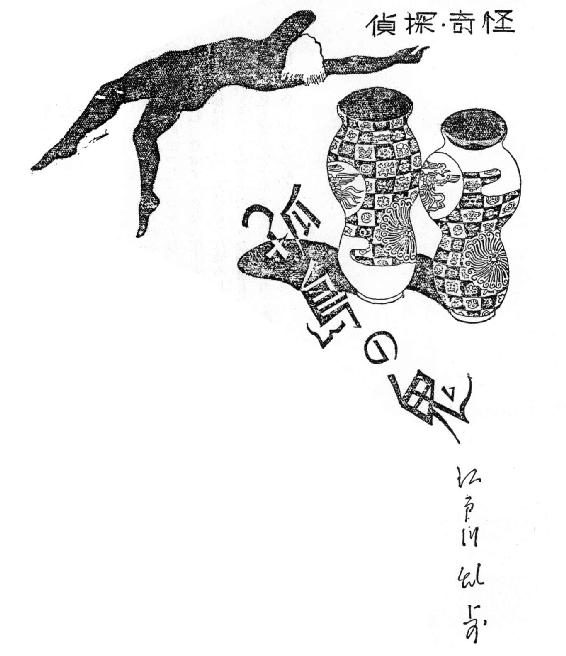 偵探・奇怪
孤島の鬼
江戸川乱歩